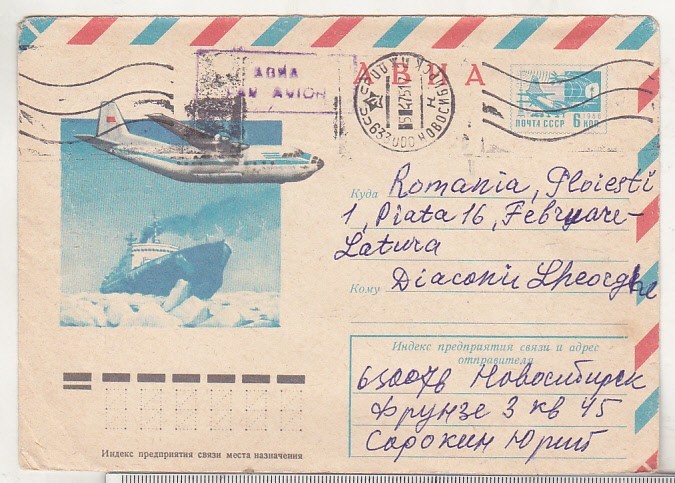 АВИА
PAR AVION
АВИА
НОВОСИБИРСК
ПОЧТА СССР 6 КОП
Куда Romania, Ploiesti
1, Piata 16, Februare-
Latura
Кому Diaconu Gheorghe
Индекс предприятия связи и адрес
отправителя
630076 Новосибирск
Фрунзе 3 кв 45
Сорокин Юрий
Индекс предприятия связи места назначения